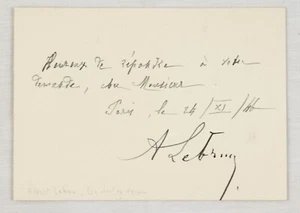 Heureux de répondre à votre
demande, cher Monsieur
Paris, le 24/XI/46
A Lebrun